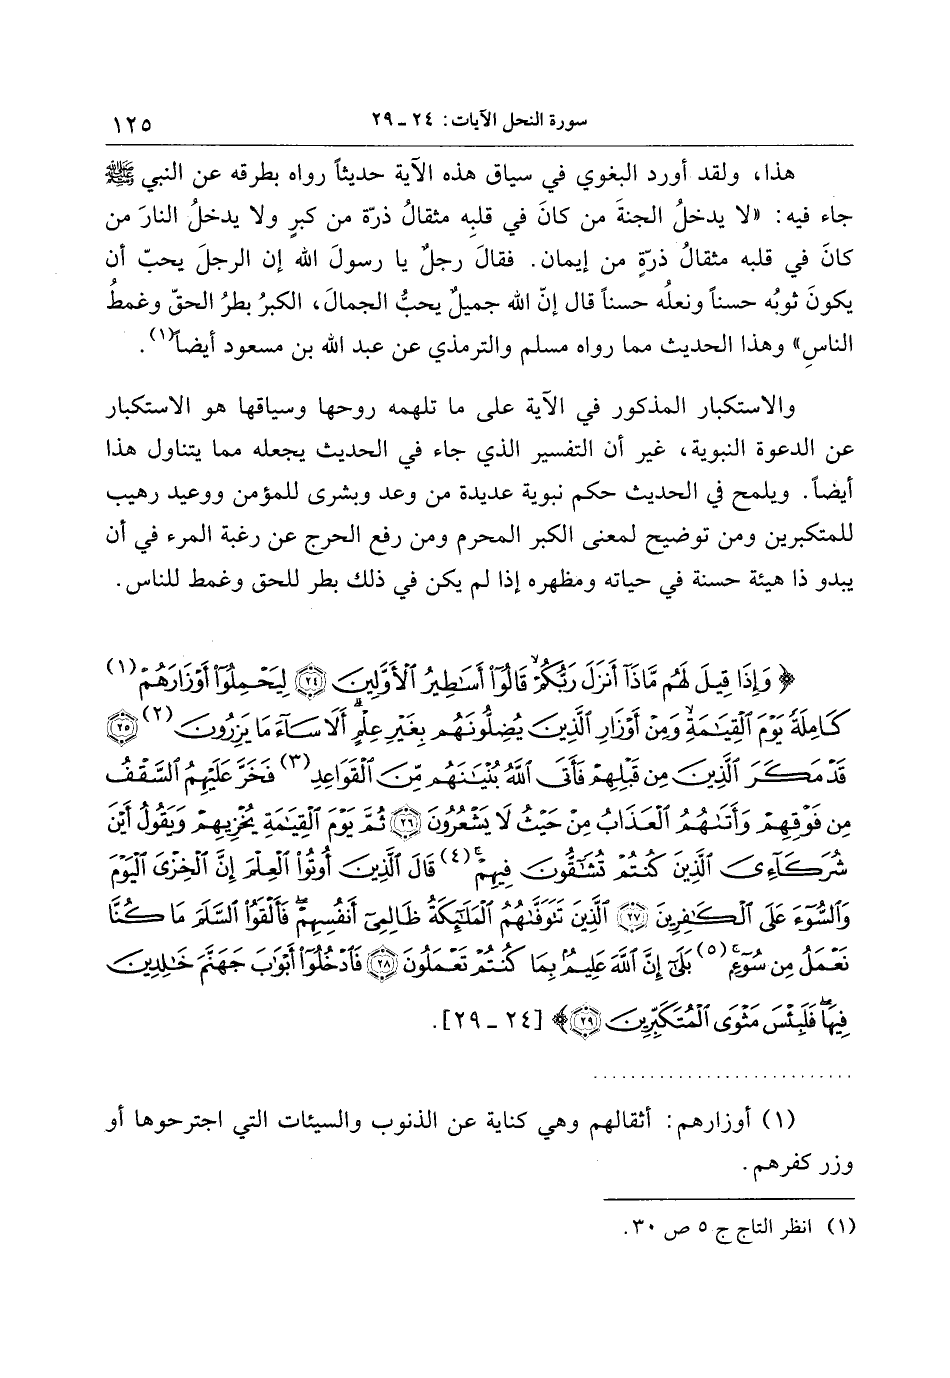 سورة النحل الآيات: ٢٤ ـ ٢٩ ١٢٥
هذا، ولقد أورد البغوي في سياق هذه الآية حديثاً رواه بطرقه عن النبي ﷺ
جاء فيه: «لا يدخلُ الجنةَ من كانَ في قلبِه مثقالُ ذرّة من كبرٍ ولا يدخلُ النارَ من
كانَ في قلبه مثقالُ ذرّةٍ من إيمان. فقالَ رجلٌ يا رسولَ الله إن الرجلَ يحبّ أن
يكونَ ثوبُه حسناً ونعلُه حسناً قال إنّ الله جميلٌ يحبُّ الجمالَ، الكبرُ بطرُ الحقّ وغمطُ
الناسِ» وهذا الحديث مما رواه مسلم والترمذي عن عبد الله بن مسعود أيضاً(١).
والاستكبار المذكور في الآية على ما تلهمه روحها وسياقها هو الاستكبار
عن الدعوة النبوية، غير أن التفسير الذي جاء في الحديث يجعله مما يتناول هذا
أيضاً. ويلمح في الحديث حكم نبوية عديدة من وعد وبشرى للمؤمن ووعيد رهيب
للمتكبرين ومن توضيح لمعنى الكبر المحرم ومن رفع الحرج عن رغبة المرء في أن
يبدو ذا هيئة حسنة في حياته ومظهره إذا لم يكن في ذلك بطر للحق وغمط للناس.
﴿ وَإِذَا قِيلَ لَهُم مَّاذَآ أَنزَلَ رَبُّكُمْ ۙ قَالُوٓا۟ أَسَـٰطِيرُ ٱلْأَوَّلِينَ ٢٤ لِيَحْمِلُوٓا۟ أَوْزَارَهُمْ (١)
كَامِلَةً يَوْمَ ٱلْقِيَـٰمَةِ ۙ وَمِنْ أَوْزَارِ ٱلَّذِينَ يُضِلُّونَهُم بِغَيْرِ عِلْمٍ ۗ أَلَا سَآءَ مَا يَزِرُونَ (٢) ٢٥
قَدْ مَكَرَ ٱلَّذِينَ مِن قَبْلِهِمْ فَأَتَى ٱللَّهُ بُنْيَـٰنَهُم مِّنَ ٱلْقَوَاعِدِ (٣) فَخَرَّ عَلَيْهِمُ ٱلسَّقْفُ
مِن فَوْقِهِمْ وَأَتَىٰهُمُ ٱلْعَذَابُ مِنْ حَيْثُ لَا يَشْعُرُونَ ٢٦ ثُمَّ يَوْمَ ٱلْقِيَـٰمَةِ يُخْزِيهِمْ وَيَقُولُ أَيْنَ
شُرَكَآءِىَ ٱلَّذِينَ كُنتُمْ تُشَـٰٓقُّونَ فِيهِمْ ۚ (٤) قَالَ ٱلَّذِينَ أُوتُوا۟ ٱلْعِلْمَ إِنَّ ٱلْخِزْىَ ٱلْيَوْمَ
وَٱلسُّوٓءَ عَلَى ٱلْكَـٰفِرِينَ ٢٧ ٱلَّذِينَ تَتَوَفَّىٰهُمُ ٱلْمَلَـٰٓئِكَةُ ظَالِمِىٓ أَنفُسِهِمْ ۖ فَأَلْقَوُا۟ ٱلسَّلَمَ مَا كُنَّا
نَعْمَلُ مِن سُوٓءٍۭ ۚ (٥) بَلَىٰٓ إِنَّ ٱللَّهَ عَلِيمٌۢ بِمَا كُنتُمْ تَعْمَلُونَ ٢٨ فَٱدْخُلُوٓا۟ أَبْوَٰبَ جَهَنَّمَ خَـٰلِدِينَ
فِيهَا ۖ فَلَبِئْسَ مَثْوَى ٱلْمُتَكَبِّرِينَ ٢٩ ﴾ [٢٤ ـ ٢٩].
(١) أوزارهم: أثقالهم وهي كناية عن الذنوب والسيئات التي اجترحوها أو
وزر كفرهم.
(١) انظر التاج ج ٥ ص ٣٠.